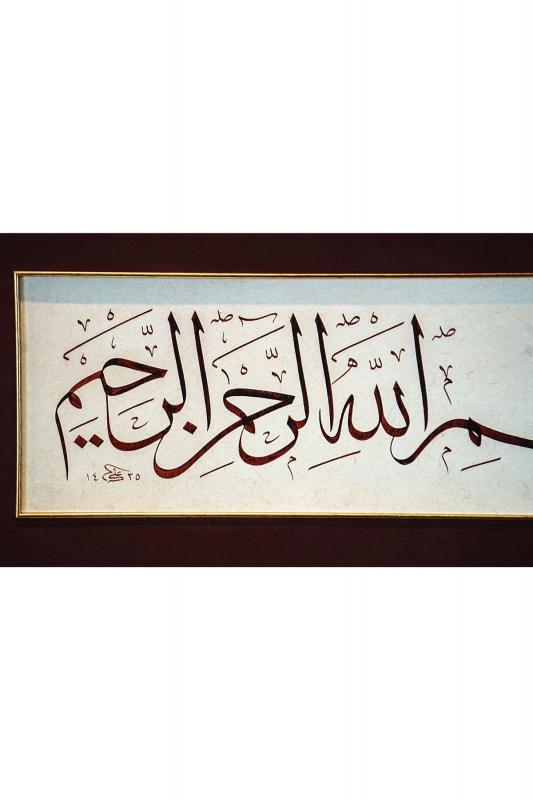 ـم الله الرحمن الرحيم
١٤٣٥